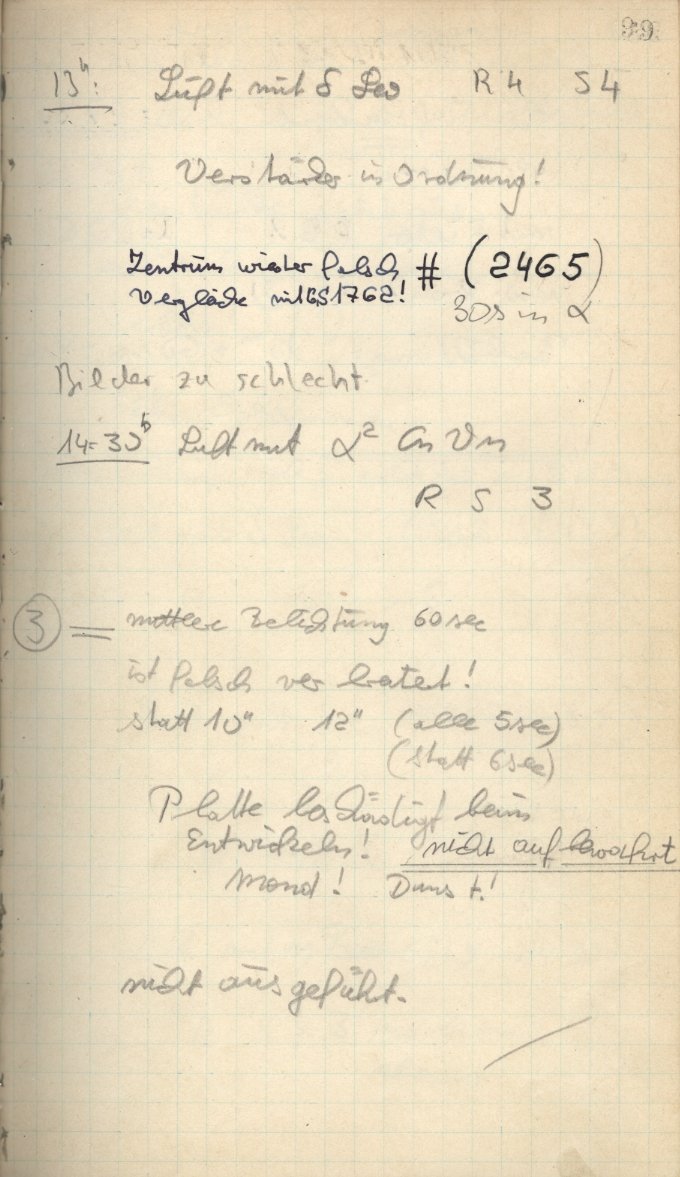 99
13h: Luft mit δ Leo R 4 S 4
Verstärker in Ordnung!
Zentrum wieder falsch # (2465)
Vergleiche mit BS 1762!
30s in α
Bilder zu schlecht
14:30h Luft mit α² Cn Vn
R S 3
3 = mittlere Belichtung 60 sec
ist falsch
statt 10" 12" (alle 5 sec)
(statt 6 sec)
Platte beschädigt beim
Entwickeln! nicht aufbewahrt
Mond! Dunst!
nicht ausgeführt.